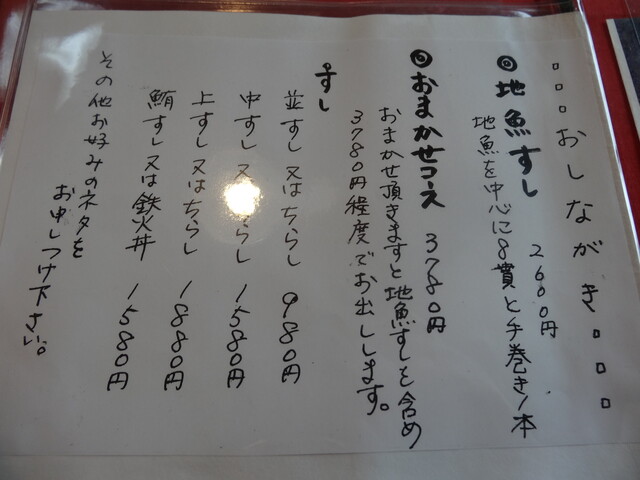 ▫▫▫おしながき▫▫▫
◎地魚すし 2600円
地魚を中心に8貫と手巻き1本
◎おまかせコース 3780円
おまかせ頂きますと地魚すしを含め
3780円程度でお出しします。
すし
並すし又はちらし 980円
中すし又 らし 1580円
上すし又はちらし 1880円
鮪すし又は鉄火丼 1580円
その他お好みのネタを
お申しつけ下さい。